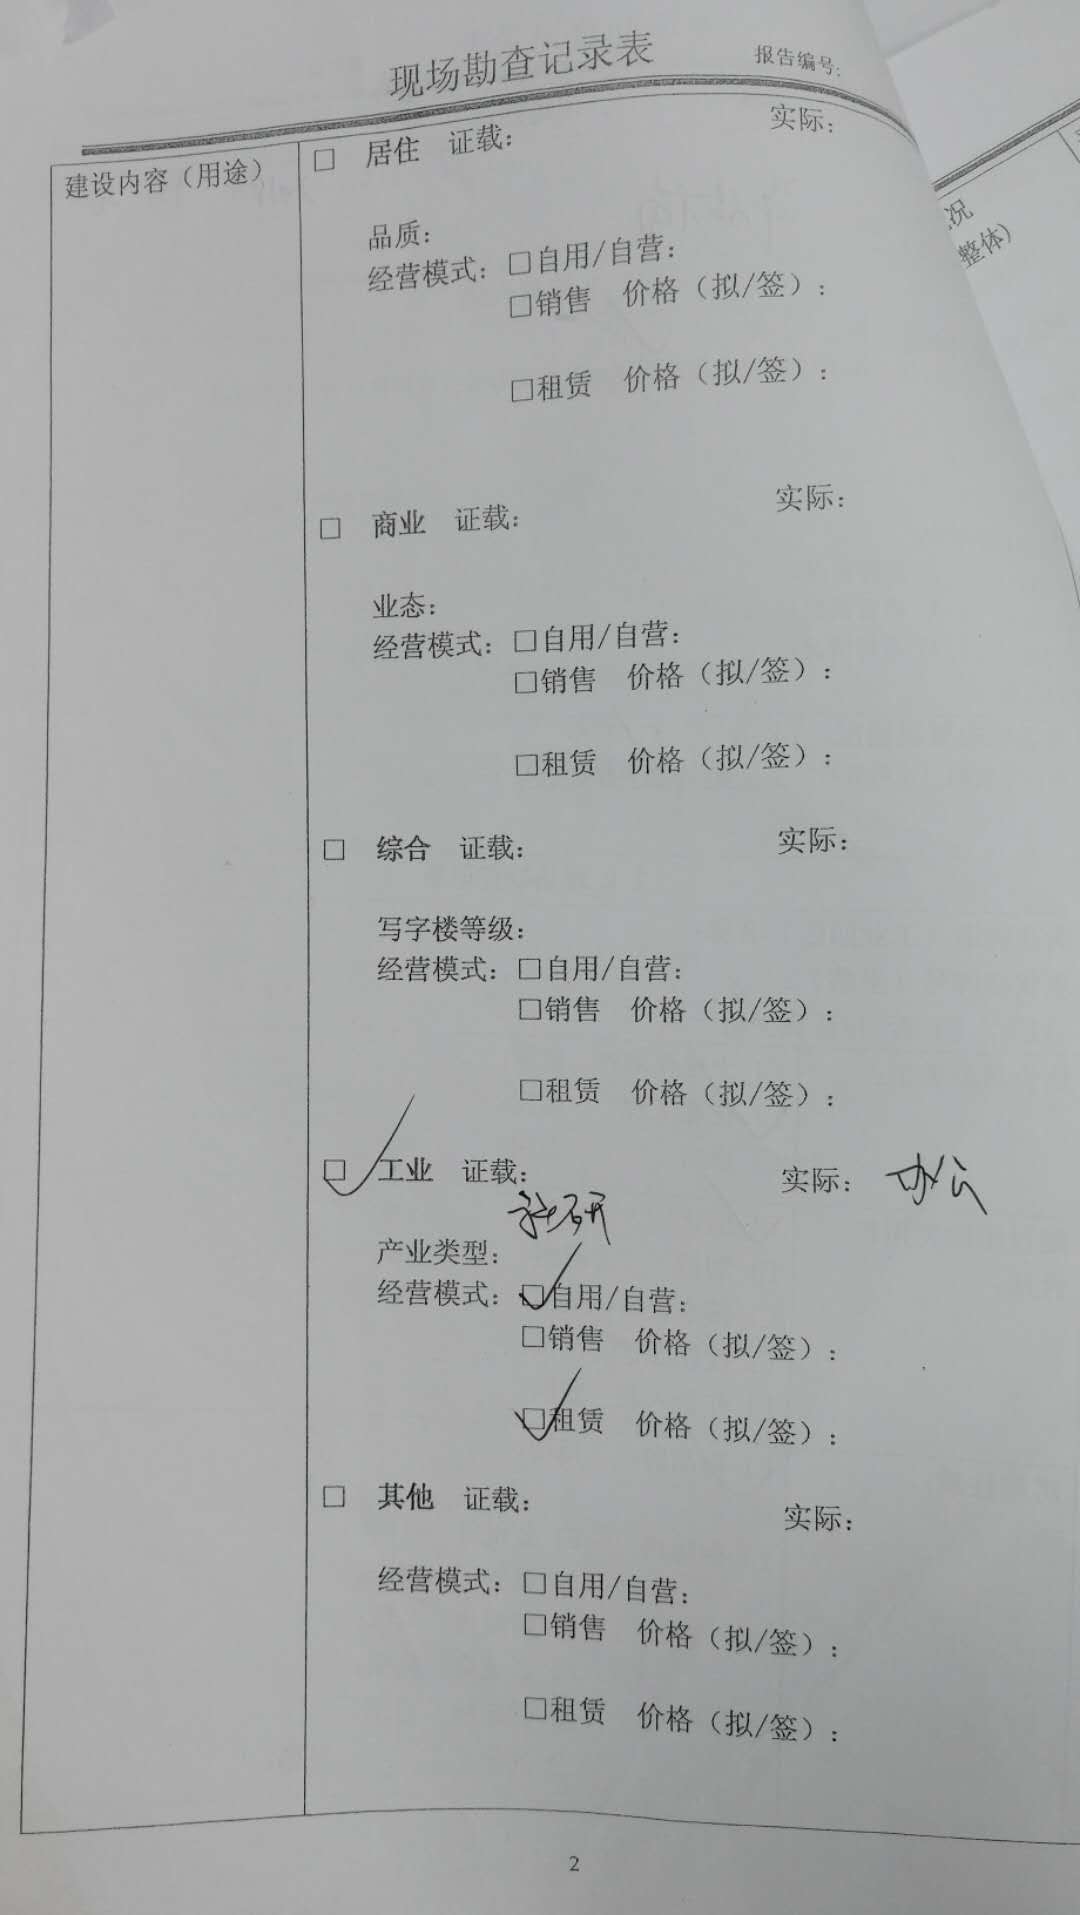 现场勘查记录表 报告编号:
建设内容（用途） □ 居住 证载： 实际：
品质：
经营模式：□自用/自营：
□销售 价格（拟/签）：
□租赁 价格（拟/签）：
□ 商业 证载： 实际：
业态：
经营模式：□自用/自营：
□销售 价格（拟/签）：
□租赁 价格（拟/签）：
□ 综合 证载： 实际：
写字楼等级：
经营模式：□自用/自营：
□销售 价格（拟/签）：
□租赁 价格（拟/签）：
☑ 工业 证载： 实际： 办公
科研
产业类型：
经营模式：☑自用/自营：
□销售 价格（拟/签）：
☑租赁 价格（拟/签）：
□ 其他 证载： 实际：
经营模式：□自用/自营：
□销售 价格（拟/签）：
□租赁 价格（拟/签）：
2
况
整体)